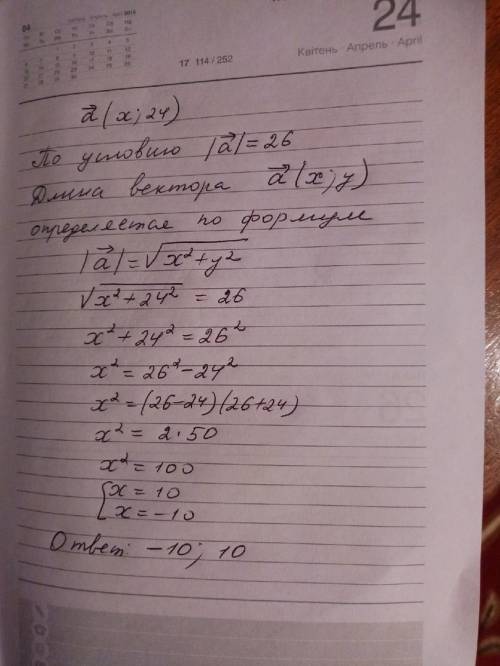 24
Квітень · Апрель · April
17 114 / 252
a⃗ (x; 24)
По условию |a⃗| = 26
Длина вектора a⃗ (x; y)
определяется по формуле
|a⃗| = √(x² + y²)
√(x² + 24²) = 26
x² + 24² = 26²
x² = 26² − 24²
x² = (26−24)(26+24)
x² = 2·50
x² = 100
[x = 10
x = −10
Ответ: −10; 10